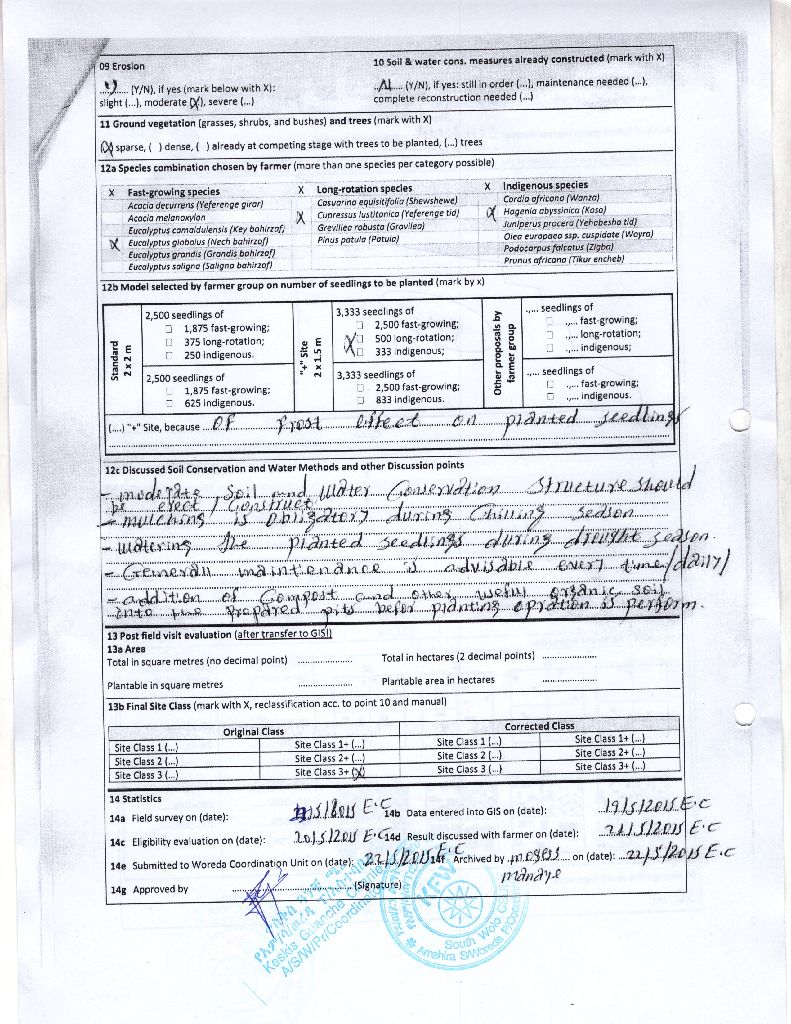 09 Erosion
10 Soil & water cons. measures already constructed (mark with X)
..Y.... (Y/N), if yes (mark below with X):
..N.... (Y/N), if yes: still in order (...), maintenance needed (...),
slight (...), moderate (X), severe (...)
complete reconstruction needed (...)
11 Ground vegetation (grasses, shrubs, and bushes) and trees (mark with X)
(X) sparse, ( ) dense, ( ) already at competing stage with trees to be planted, (...) trees
12a Species combination chosen by farmer (more than one species per category possible)
X Fast-growing species
Acacia decurrens (Yeferenge girar)
Acacia melanoxylon
Eucalyptus camaldulensis (Key bahirzaf)
X Eucalyptus globolus (Nech bahirzof)
Eucalyptus grandis (Grandis bahirzaf)
Eucalyptus saligna (Saligna bahirzaf)
X Long-rotation species
Casuarina equisitifolia (Shewshewe)
X Cupressus lustitonica (Yeferenge tid)
Grevillea robusta (Gravilea)
Pinus patula (Patula)
X Indigenous species
Cordia africana (Wanza)
X Hagenia abyssinica (Koso)
Juniperus procera (Yehabesha tid)
Olea europaea ssp. cuspidate (Woyra)
Podocarpus falcatus (Zigba)
Prunus africana (Tikur encheb)
12b Model selected by farmer group on number of seedlings to be planted (mark by x)
Standard
2 x 2 m
2,500 seedlings of
☐ 1,875 fast-growing;
☐ 375 long-rotation;
☐ 250 indigenous.
2,500 seedlings of
☐ 1,875 fast-growing;
☐ 625 indigenous.
"+" Site
2 x 1.5 m
3,333 seedlings of
☐ 2,500 fast-growing;
X ☐ 500 long-rotation;
☐ 333 indigenous;
3,333 seedlings of
☐ 2,500 fast-growing;
☐ 833 indigenous.
Other proposals by
farmer group
.,... seedlings of
☐ .,... fast-growing;
☐ .,... long-rotation;
☐ .,... indigenous;
.,... seedlings of
☐ .,... fast-growing;
☐ .,... indigenous.
(....) "+" Site, because ... OF Frost effect on planted seedlings
12c Discussed Soil Conservation and Water Methods and other Discussion points
- moderate, Soil and Water Conservation Structure should
be erect / Construct
- mulching is obligatory during Chilling season
- watering the planted seedlings during drought season.
- Generall maintienance is advisable every time/daily/
- addition of Compost and other useful organic soil
into the prepared pits befor planting opration is perform.
13 Post field visit evaluation (after transfer to GIS!)
13a Area
Total in square metres (no decimal point) ......................
Total in hectares (2 decimal points) ......................
Plantable in square metres ......................
Plantable area in hectares ......................
13b Final Site Class (mark with X, reclassification acc. to point 10 and manual)
Original Class
Corrected Class
Site Class 1 (...) Site Class 1+ (...) Site Class 1 (...) Site Class 1+ (...)
Site Class 2 (...) Site Class 2+ (...) Site Class 2 (...) Site Class 2+ (...)
Site Class 3 (...) Site Class 3+ (X) Site Class 3 (...) Site Class 3+ (...)
14 Statistics
14a Field survey on (date): /5/2015 E.C
14b Data entered into GIS on (date): 19/5/2015 E.C
14c Eligibility evaluation on (date): 20/5/2015 E.C
14d Result discussed with farmer on (date): 21/5/2015 E.C
14e Submitted to Woreda Coordination Unit on (date): 22/5/2015 E.C
14f Archived by moges manaye on (date): 22/5/2015 E.C
14g Approved by ............................ (Signature)
KFW
South Wolo
Amahira S/Woreda P/Coordi
A/S/W/Pr/Coordinat